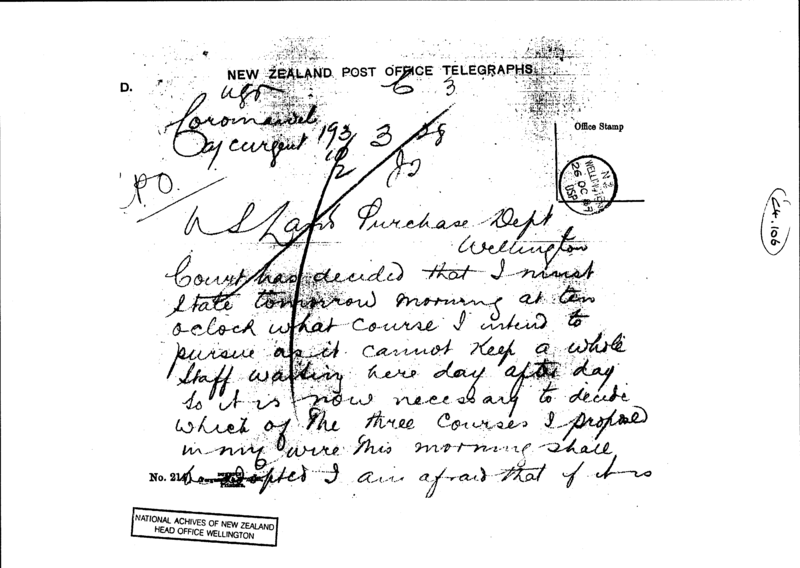 NEW ZEALAND POST OFFICE TELEGRAPHS.
D.
ugt
6 3
Coromandel
193 3 28
Office Stamp
P.O.
N Z
WELLINGTON
26 OC 97
C4.106
U S Land Purchase Dept
Wellington
Court has decided that I must
State tomorrow morning at ten
oclock what course I intend to
pursue as it cannot keep a whole
Staff waiting here day after day
So it is now necessary to decide
which of the three courses I proposed
in my wire this morning shall
No. 21
be adopted I am afraid that if it is
NATIONAL ACHIVES OF NEW ZEALAND
HEAD OFFICE WELLINGTON